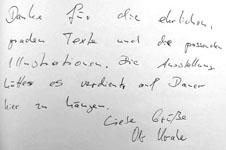 Danke für die ehrlichen,
graden Texte und die passenden
Illustrationen. Die Ausstellung
hätte es verdient auf Dauer
hier zu hängen.
Liebe Grüße